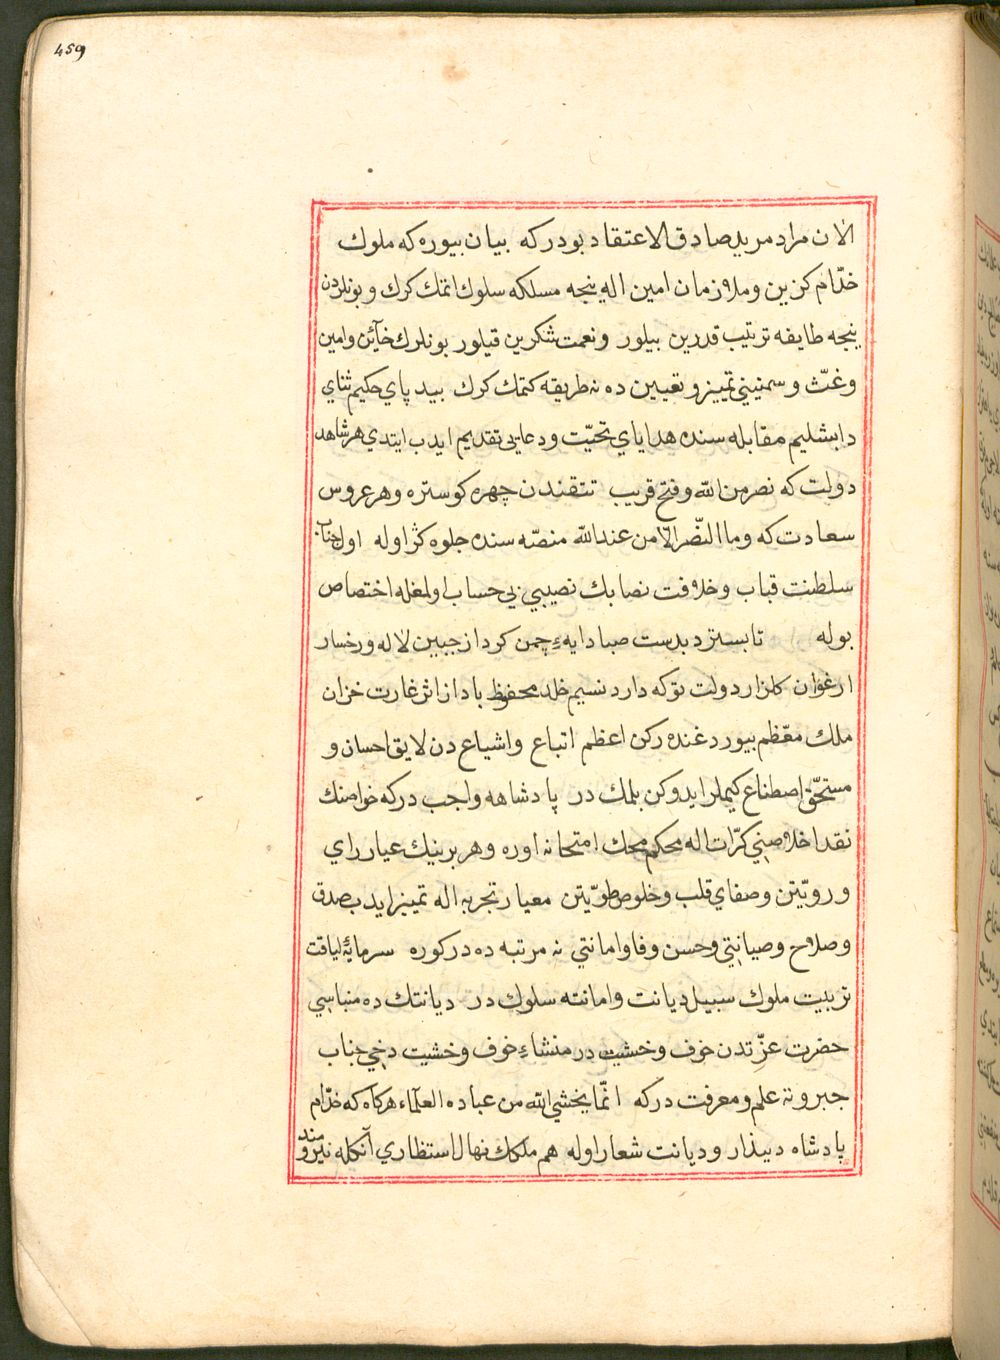 459
الان مراد مريد صادق الاعتقاد بودر كه بيان بيوره كه ملوك
خدّام كزين وملازمان امين اله نيجه مسلكه سلوك اتمك كرك و بونلردن
نيجه طايفه ترتيب قدرين بيلور ونعمت شكرين قيلور بونلرك خآئن وامين
وغثّ وسمنيني تمييز و تعيين ده نه طريقه كتمك كرك بيدپاي حكيم ثناي
دابشليم مقابله سنده هداياي تحيّت ودعايى تقديم ايدب ايتدي هر شاهد
دولت كه نصر من الله وفتح قريب تتقندن چهره كوستره وهر عروس
سعادت كه وما النّصر الّا من عند الله منصّه سنده جلوه كر اوله اول جناب
سلطنت قباب وخلافت نصابك نصيبي بي حساب اولمغله اختصاص
بوله تا بسترد بدست صبا دايهء چمن كرد از جبين لاله ورخسار
ارغوان كلزار دولت توكه دارد نسيم خلد محفوظ باد از اثر غارت خزان
ملك معّظم بيوردغنده ركن اعظم اتباع واشياع دن لايق احسان و
مستحّق اصطناع كيملر ايدوكن بلمك در پادشاهه واجب دركه خواصنك
نقد اخلاصني كرّات اله محكم محك امتحانه اوره وهر برينك عيار راي
ورويّتن وصفاي قلب وخلوص طويّتن معيار تجربه اله تمييز ايدب صدق
وصلاح وصيانتي وحسن وفا وامانتي نه مرتبه ده در كوره سرمايهٔ لياقت
تربيت ملوك سبيل ديانت وامانته سلوك در ديانتك ده منباسي
حضرت عزّتدن خوف وخشيت در منشاء خوف وخشيت دخي جناب
جبروته علم ومعرفت دركه انّما يخشي الله من عباده العلمآء هركاه كه خدّام
پادشاه دينذار وديانت شعار اوله هم ملكك نهال استظاري آنكله نيرومند